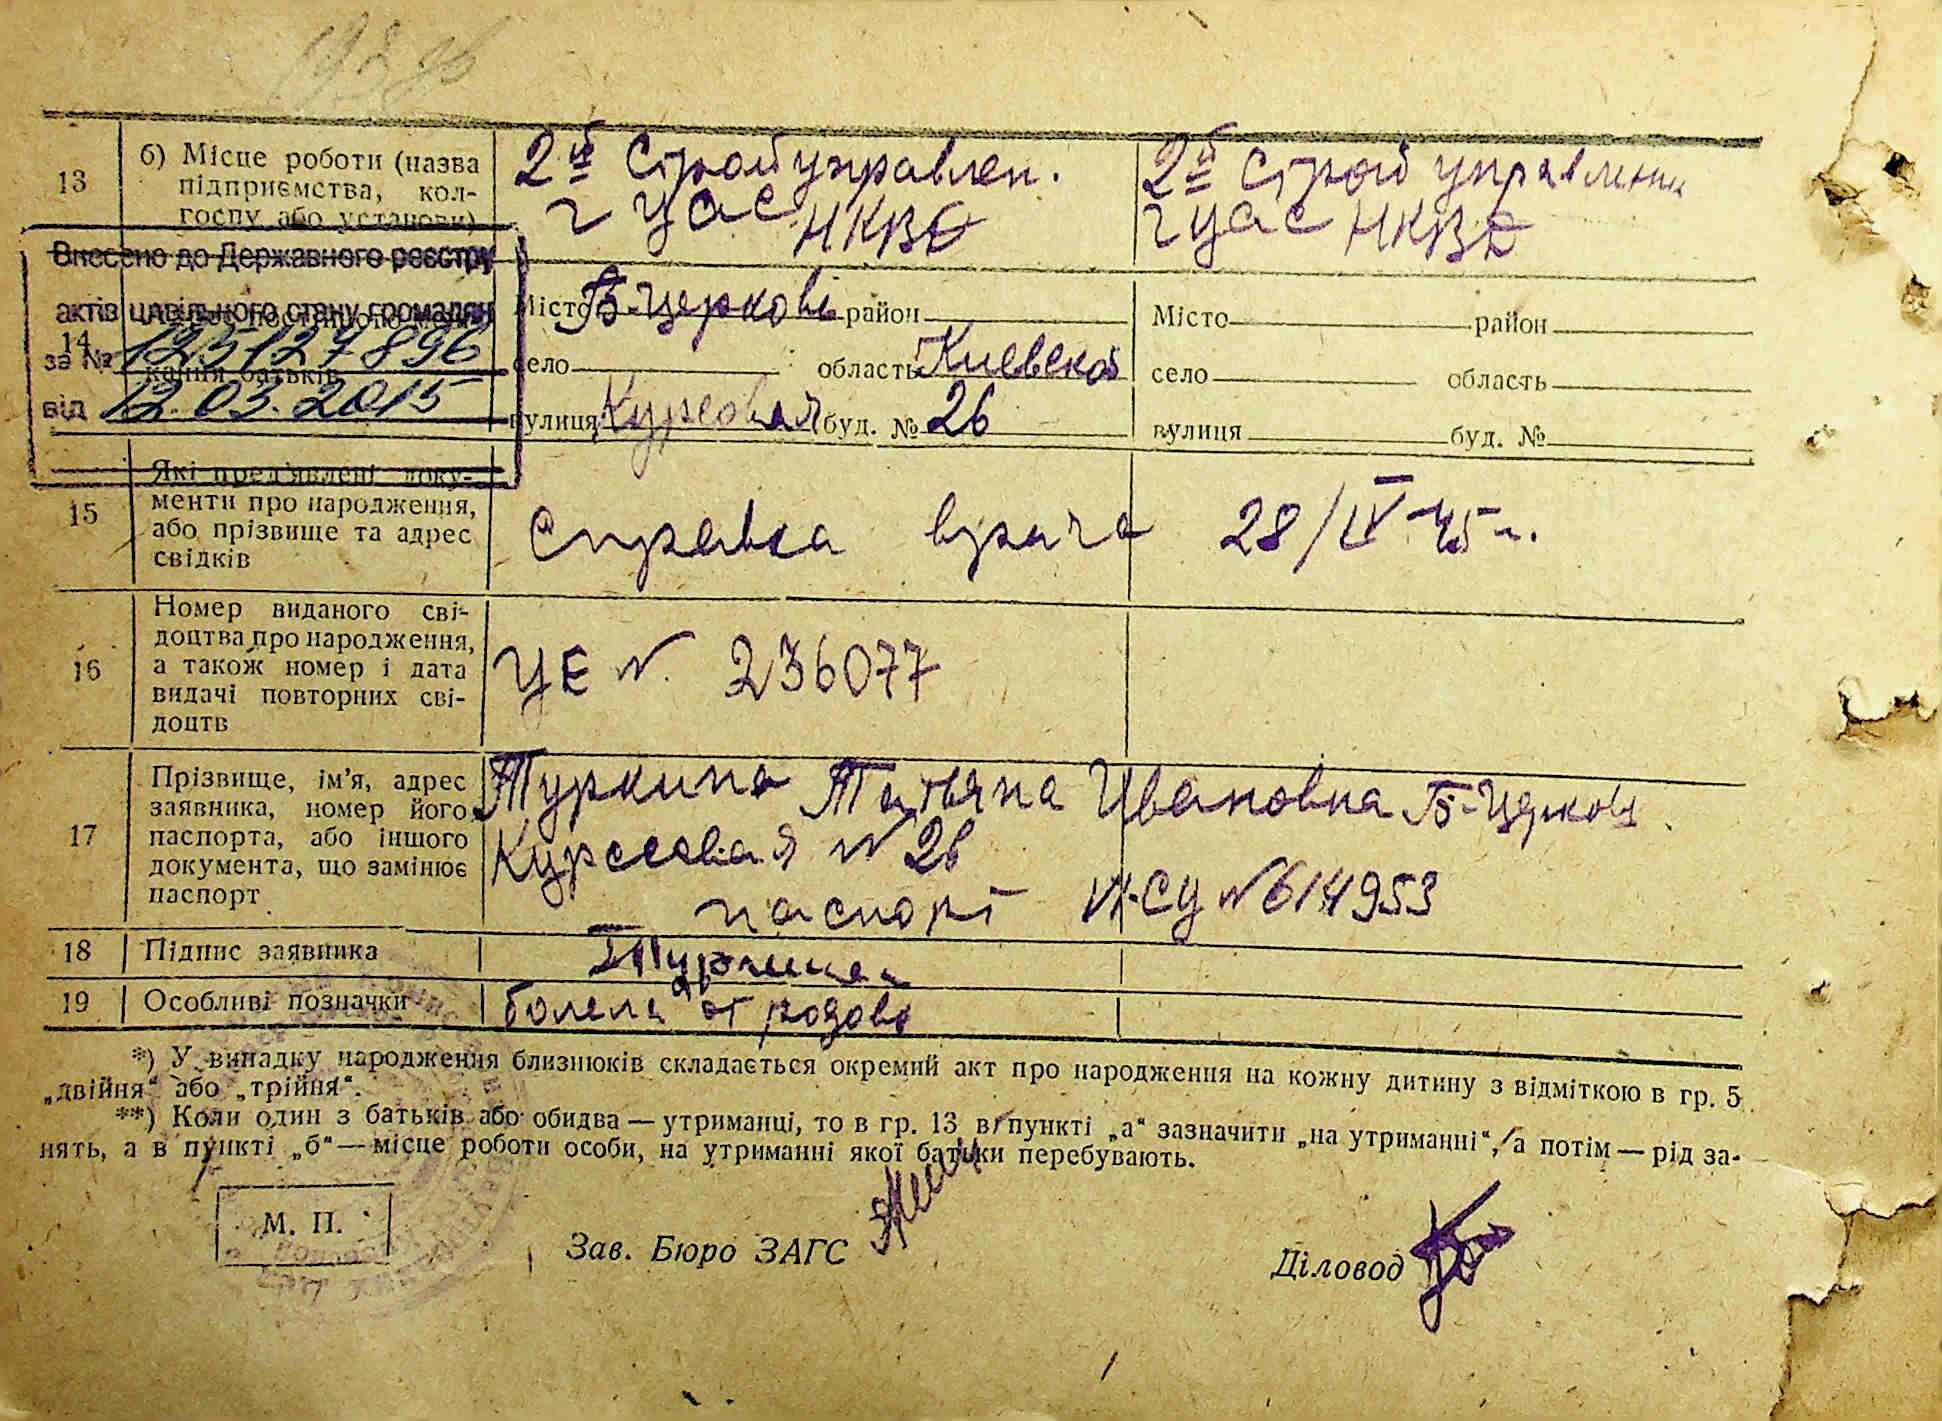 13
б) Місце роботи (назва
підприємства, кол-
госпу або установи)
2й Стройуправлен.
ГУАС
НКВД
2й Строй управлении
ГУАС НКВД
Внесено до Державного реєстру
актів цивільного стану громадян
за № 125127896
від 12.03.2015
14
кання батьків
Місто Б-Церковь район
село область Киевской
вулиця Курсовая буд. № 26
Місто район
село область
вулиця буд. №
15
Які пред'явлені доку-
менти про народження,
або прізвище та адрес
свідків
Справка врача 28/IV-45 г.
16
Номер виданого сві-
доцтва про народження,
а також номер і дата
видачі повторних сві-
доцтв
УЕ N. 236077
17
Прізвище, ім'я, адрес
заявника, номер його
паспорта, або іншого
документа, що замінює
паспорт
Туркина Татьяна Ивановна Б-Церковь
Курсовая N 26
паспорт СУ N 614953
18
Підпис заявника
Туркина
19
Особливі позначки
болела от родов
*) У випадку народження близнюків складається окремий акт про народження на кожну дитину з відміткою в гр. 5
„двійня“ або „трійня“.
**) Коли один з батьків або обидва — утриманці, то в гр. 13 в пункті „а“ зазначити „на утриманні“, а потім — рід за-
нять, а в пункті „б“ — місце роботи особи, на утриманні якої батьки перебувають.
М. П.
Зав. Бюро ЗАГС
Діловод